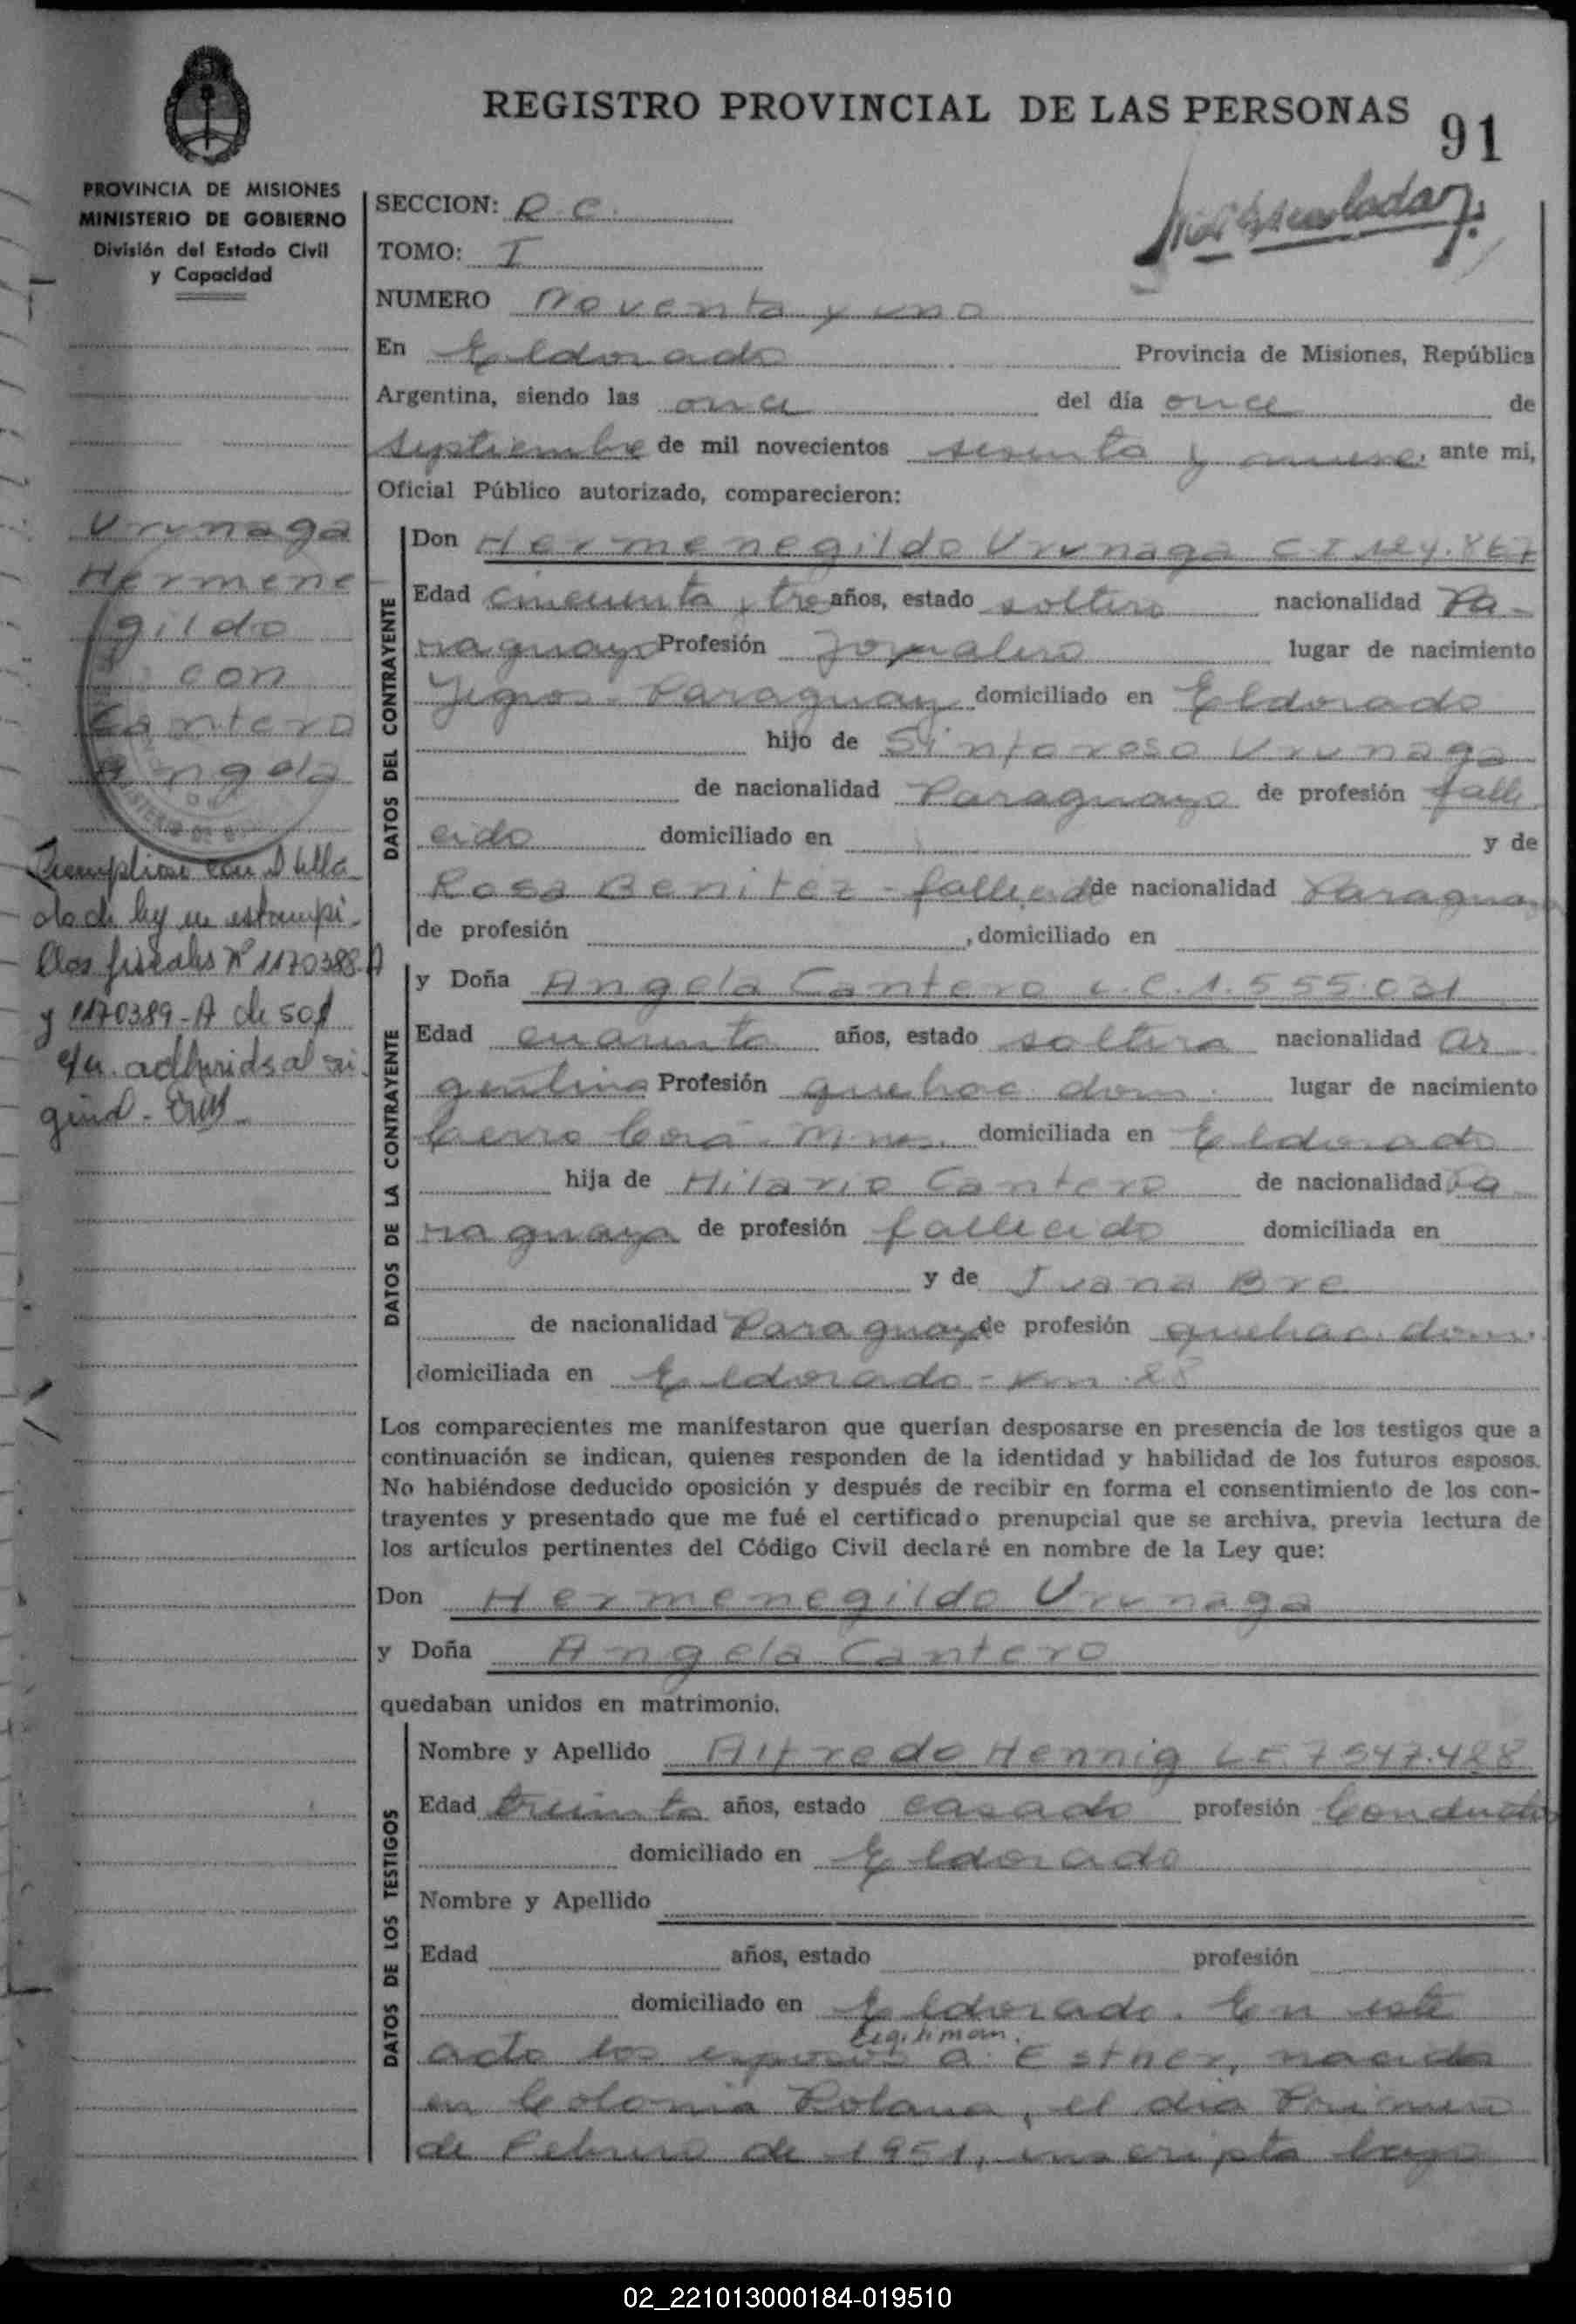 REGISTRO PROVINCIAL DE LAS PERSONAS
91
PROVINCIA DE MISIONES
MINISTERIO DE GOBIERNO
División del Estado Civil
y Capacidad
SECCION: R.C.
TOMO: I
NUMERO Noventa y uno
En Eldorado Provincia de Misiones, República
Argentina, siendo las once del día once de
septiembre de mil novecientos sesenta y nueve, ante mi,
Oficial Público autorizado, comparecieron:
Urunaga
Hermene
gildo
con
Cantero
Angela
olo de ley en estampi-
llas fiscales Nº 1170388-A
y 1170389-A de 50$
c/u. adheridas al ori
ginal-
DATOS DEL CONTRAYENTE
Don Hermenegildo Urunaga C I 124.867
Edad cincuenta y tres años, estado soltero nacionalidad Pa-
raguayo Profesión Jornalero lugar de nacimiento
Yegros-Paraguay domiciliado en Eldorado
hijo de Sinforoso Urunaga
de nacionalidad Paraguayo de profesión falle
cido domiciliado en y de
Rosa Benitez - fallecida de nacionalidad Paraguaya
de profesión , domiciliado en
DATOS DE LA CONTRAYENTE
y Doña Angela Cantero L.C.1.555.031
Edad cuarenta años, estado soltera nacionalidad Ar
gentina Profesión quehac. dom. lugar de nacimiento
Cerro Corá-Mnes. domiciliada en Eldorado
hija de Hilario Cantero de nacionalidad Pa
raguaya de profesión fallecido domiciliada en
y de Juana Bre
de nacionalidad Paraguaya de profesión quehac. dom.
domiciliada en Eldorado-Km 28
Los comparecientes me manifestaron que querían desposarse en presencia de los testigos que a
continuación se indican, quienes responden de la identidad y habilidad de los futuros esposos.
No habiéndose deducido oposición y después de recibir en forma el consentimiento de los con-
trayentes y presentado que me fué el certificado prenupcial que se archiva, previa lectura de
los artículos pertinentes del Código Civil declaré en nombre de la Ley que:
Don Hermenegildo Urunaga
y Doña Angela Cantero
quedaban unidos en matrimonio.
DATOS DE LOS TESTIGOS
Nombre y Apellido Alfredo Hennig LE 7547.428
Edad treinta años, estado casado profesión Conductor
domiciliado en Eldorado
Nombre y Apellido
Edad años, estado profesión
domiciliado en Eldorado. En este
legitiman.
acto los esposos a: Esther, nacida
en Colonia Polana, el día Primero
de Febrero de 1951, inscripta bajo
02_221013000184-019510